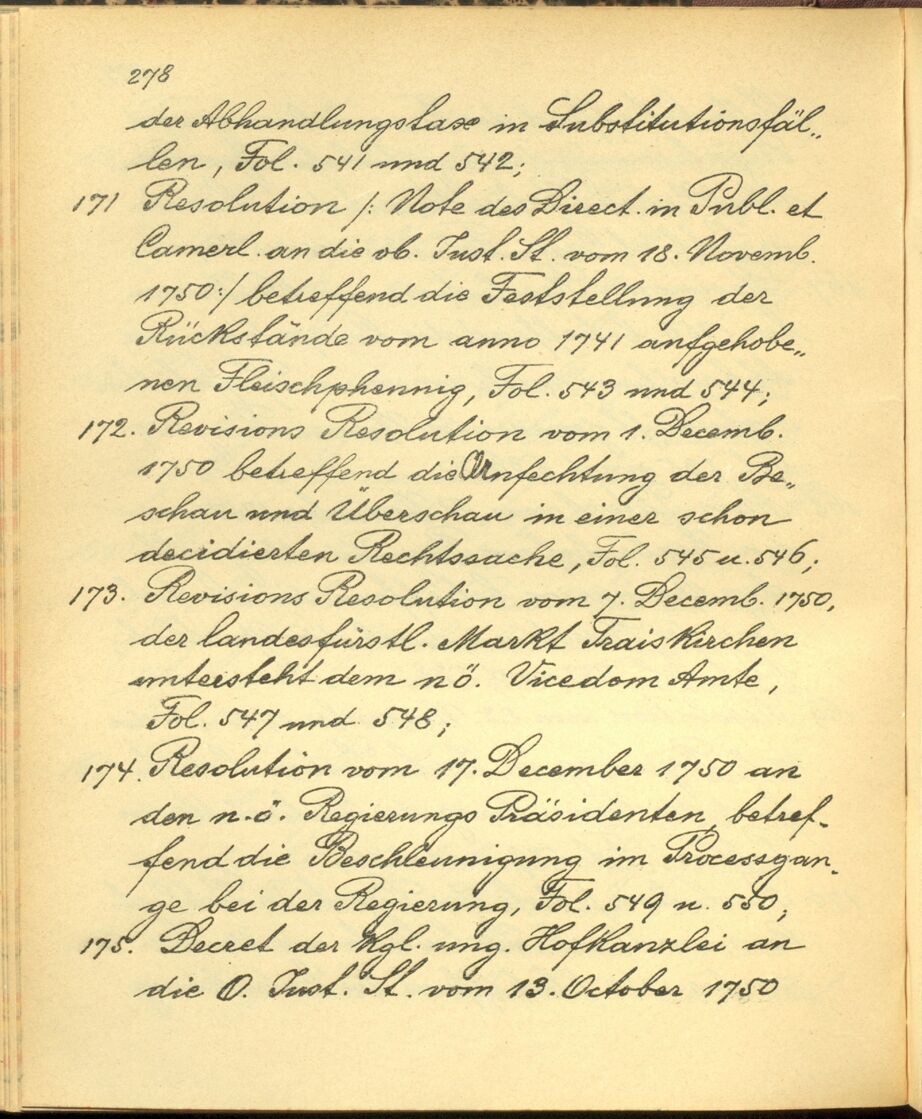 278
der Abhandlungstaxe in Substitutionsfäl„
len, Fol. 541 und 542;
171 Resolution /: Note des Direct. in Publ. et
Camerl. an die ob. Just. St. vom 18. Novemb.
1750:/ betreffend die Feststellung der
Rückstände vom anno 1741 aufgehobe„
nen Fleischphennig, Fol. 543 und 544;
172. Revisions Resolution vom 1. Decemb.
1750 betreffend die Anfechtung der Be„
schau und Überschau in einer schon
decidierten Rechtssache, Fol. 545 u. 546;
173. Revisions Resolution vom 7. Decemb. 1750,
der landesfürstl. Markt Traiskirchen
untersteht dem nö. Vicedom Amte,
Fol. 547 und 548;
174. Resolution vom 17. December 1750 an
den n.ö. Regierungs Präsidenten, betref-
fend die Beschleunigung im Processgan-
ge bei der Regierung, Fol. 549 u. 550;
175. Decret der kgl. ung. Hofkanzlei an
die O. Just. St. vom 13. October 1750